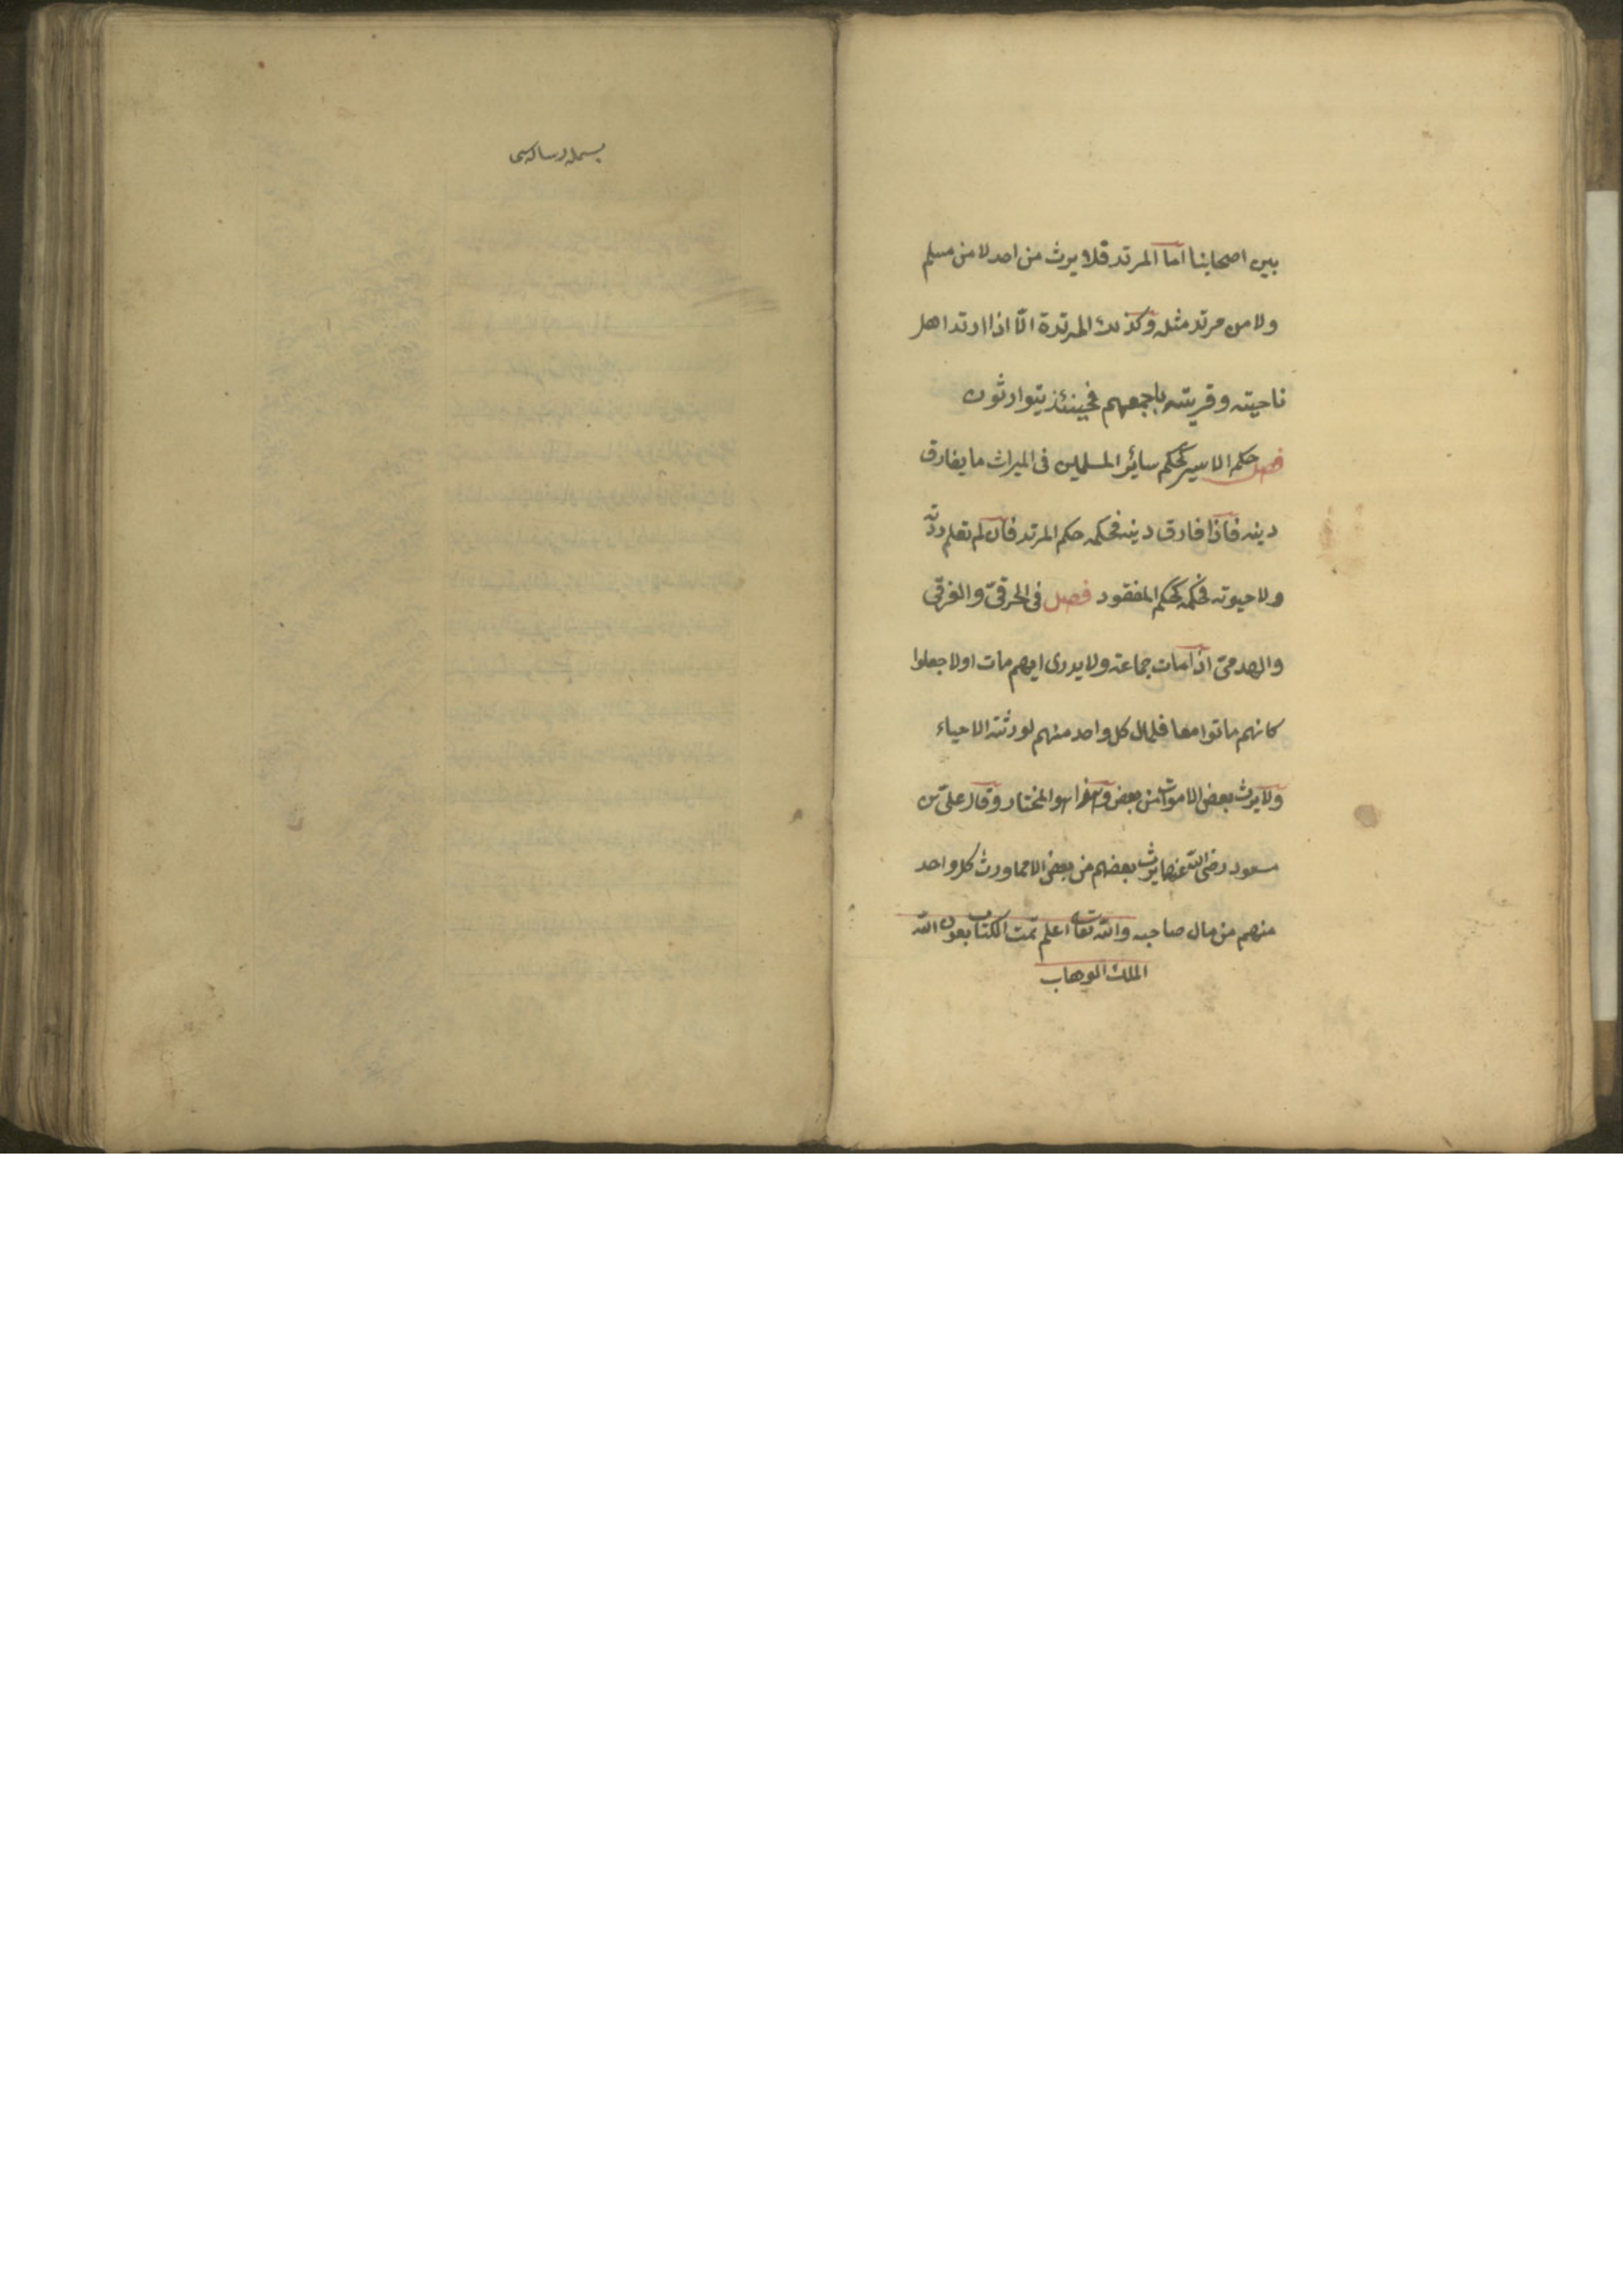 بين اصحابنا اما المرتد فلا يرث من احد لا من مسلم
ولا من مرتد مثله وكذلك المرتدة الّا اذا ارتد اهل
ناحيته وقريته باجمعهم فحينئذ يتوارثون
فصل حكم الاسير كحكم سائر المسلمين فى الميراث ما يفارق
دينه فاذا فارق دينه فحكمه حكم المرتد فان لم تعلم ردّته
ولا حيوته فحكمه كحكم المفقود فصل فى الحرقىّ والغرقى
والهدمىّ اذا مات جماعة ولا يدرى ايهم مات اولا جعلوا
كانهم ماتوا معا فلمال كل واحد منهم لورثته الاحياء
ولا يرث بعض الاموات من بعض وهذا هو المختار وقال علىّ بن
مسعود رضى الله عنهما يرث بعضهم من بعض الا مما ورث كل واحد
منهم من مال صاحبه والله تعالى اعلم تمت الكتاب بعون الله
الملك الوهاب
بسمله رساله سى